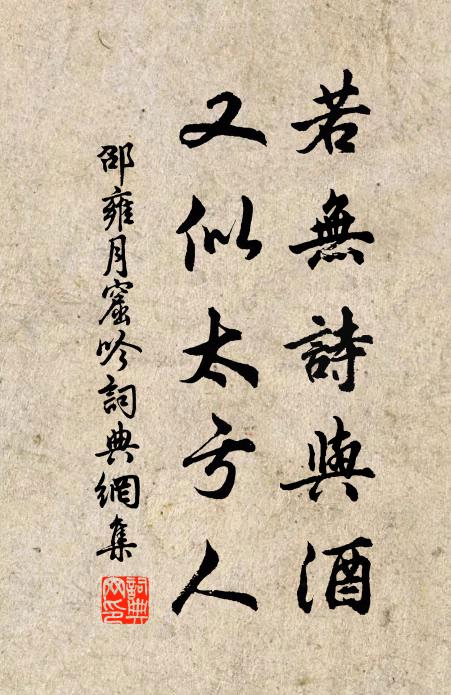 若無詩與酒
又似太亏人
邵雍月窟吟詞典網集
詞典
网印